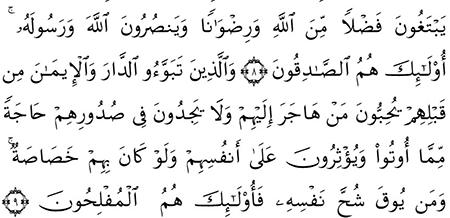 يَبْتَغُونَ فَضْلًا مِّنَ ٱللَّهِ وَرِضْوَٰنًا وَيَنصُرُونَ ٱللَّهَ وَرَسُولَهُۥٓ ۚ
أُو۟لَـٰٓئِكَ هُمُ ٱلصَّـٰدِقُونَ ۝٨ وَٱلَّذِينَ تَبَوَّءُو ٱلدَّارَ وَٱلْإِيمَـٰنَ مِن
قَبْلِهِمْ يُحِبُّونَ مَنْ هَاجَرَ إِلَيْهِمْ وَلَا يَجِدُونَ فِى صُدُورِهِمْ حَاجَةً
مِّمَّآ أُوتُوا۟ وَيُؤْثِرُونَ عَلَىٰٓ أَنفُسِهِمْ وَلَوْ كَانَ بِهِمْ خَصَاصَةٌ ۚ
وَمَن يُوقَ شُحَّ نَفْسِهِۦ فَأُو۟لَـٰٓئِكَ هُمُ ٱلْمُفْلِحُونَ ۝٩